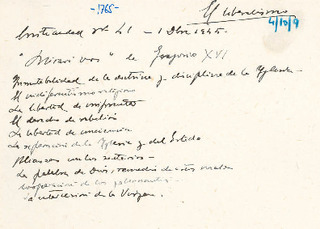 -1765-
El liberalismo
4/10/9
Cristiandad nº 41 - 1 Dbre 1945.
"Mirari vos" de Gregorio XVI
Inmutabilidad de la doctrina y disciplina de la Iglesia
El indiferentismo religioso
La libertad de imprenta
El derecho de rebelión
La libertad de conciencia
La separación de la Iglesia y del Estado
Alianzas con los sectarios -
La palabra de Dios, remedio de estos males
cooperación de los gobernantes
La intercesión de la Virgen.